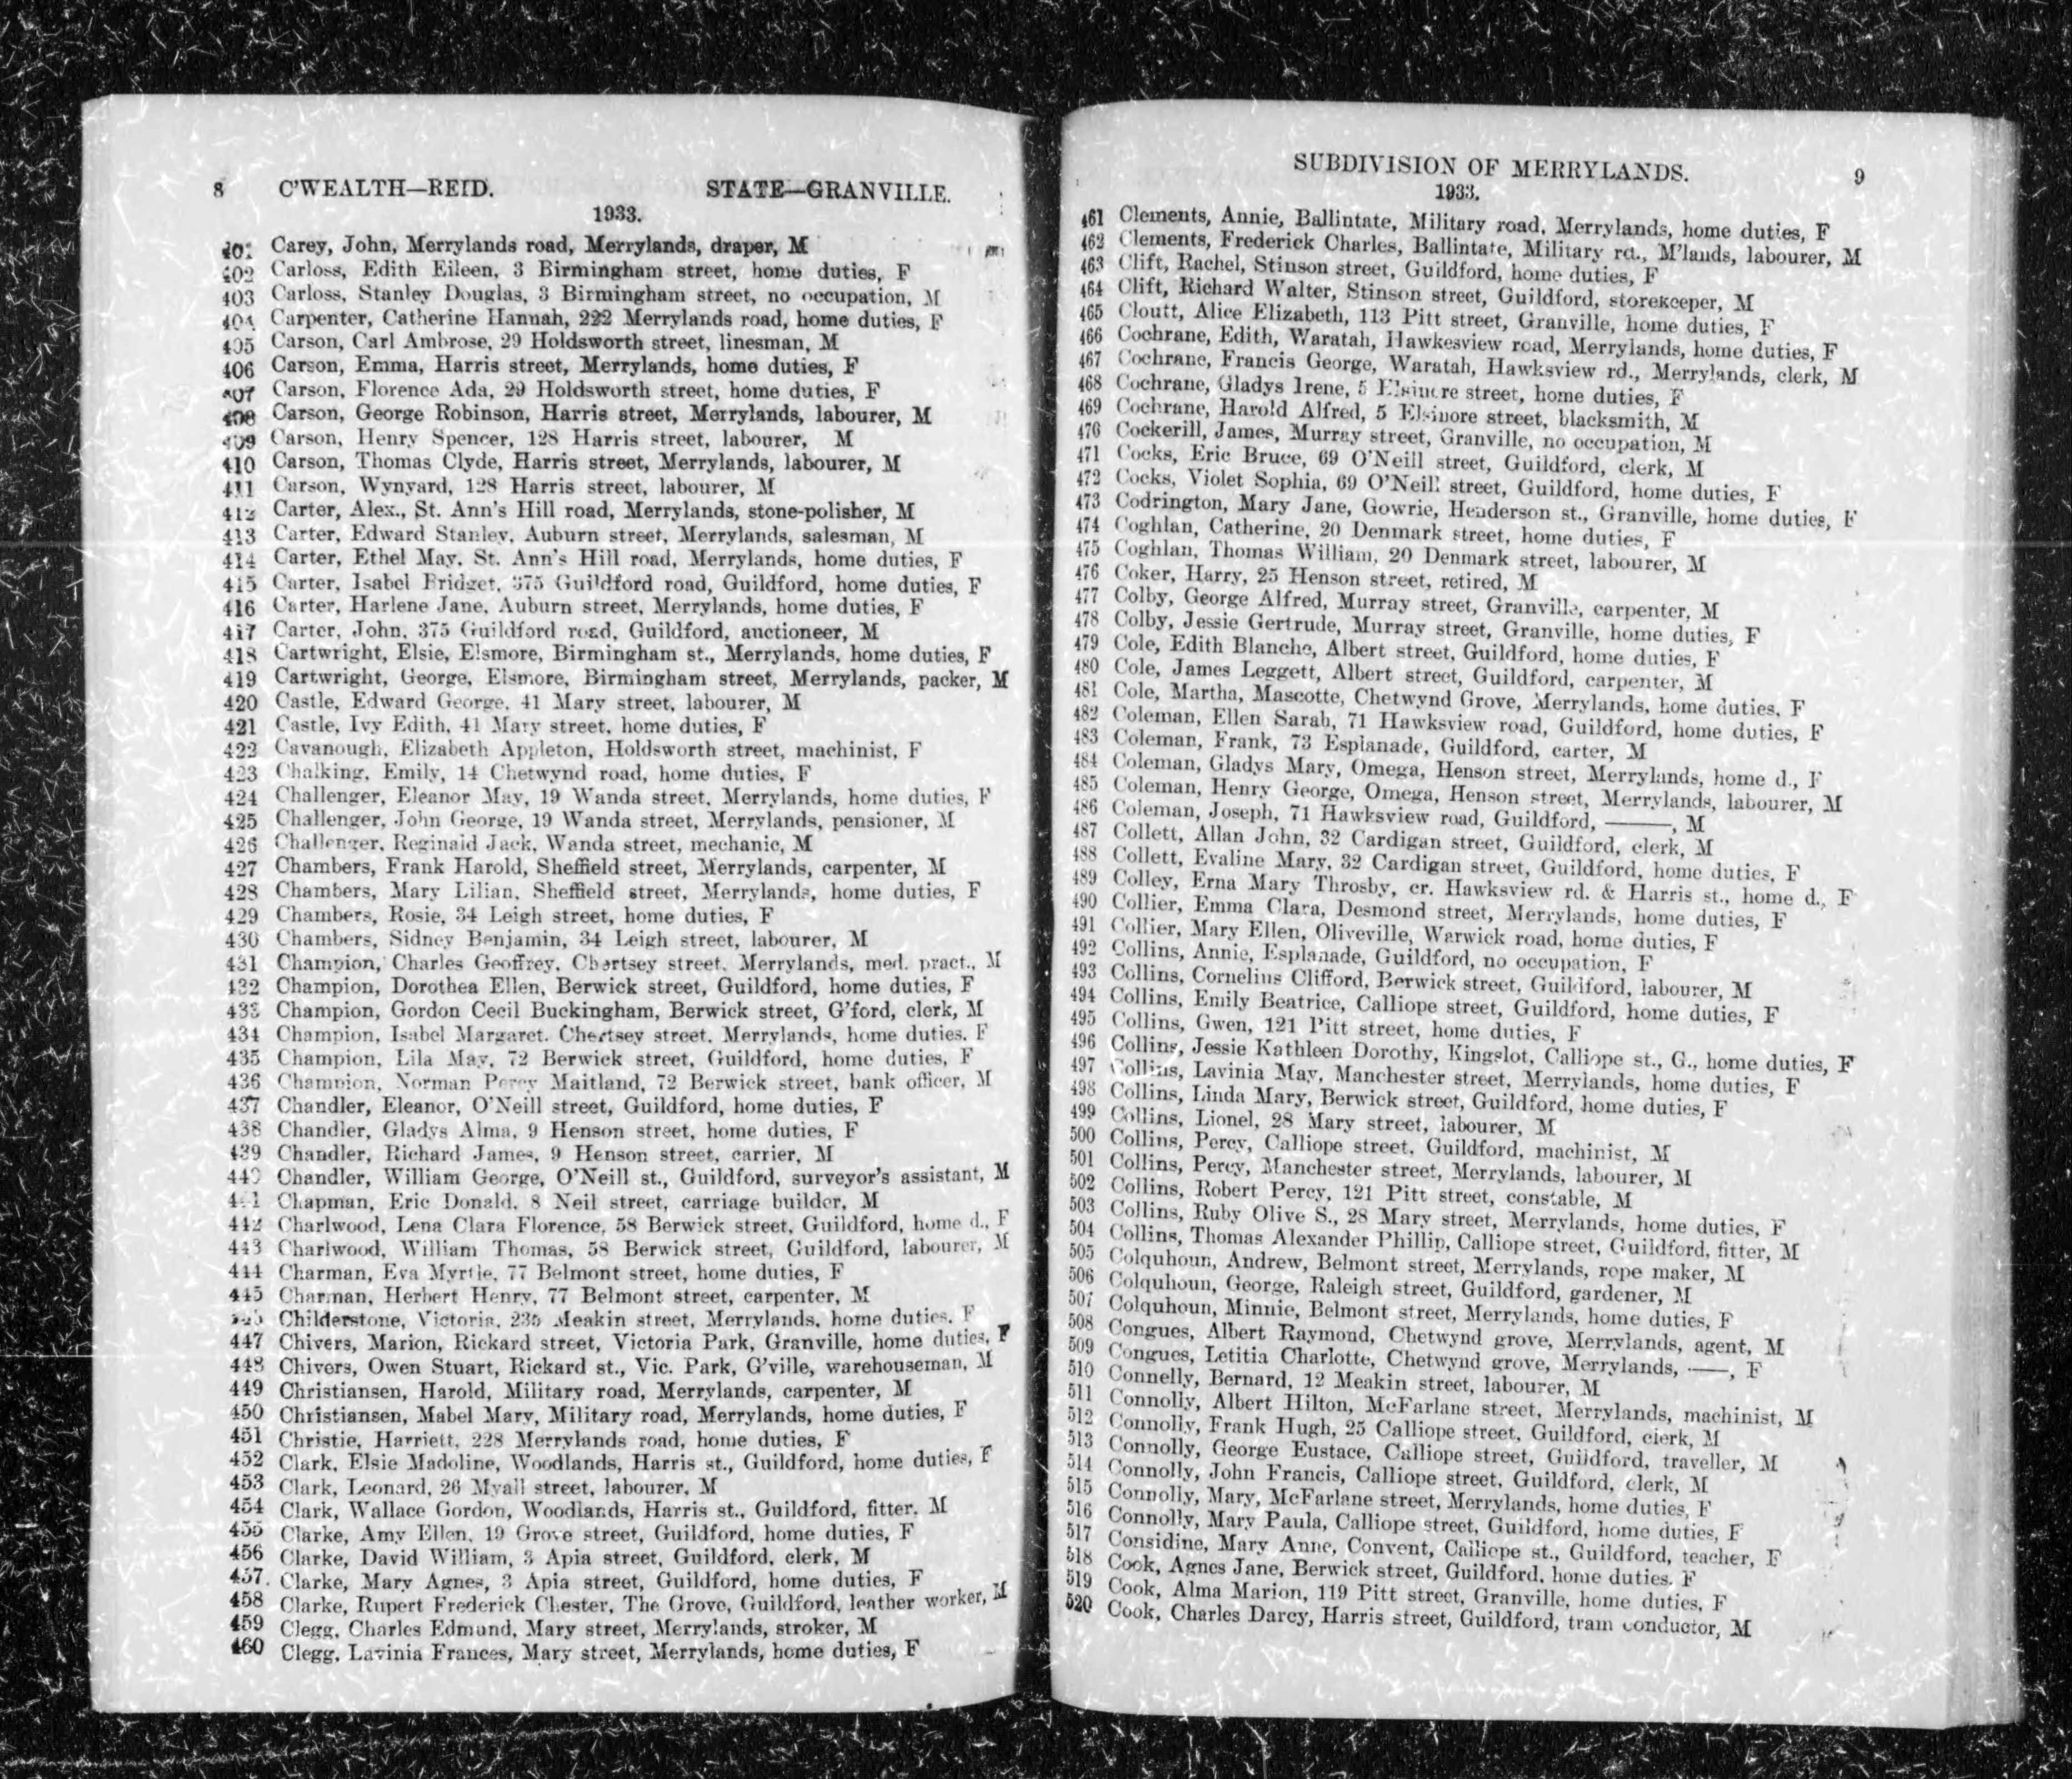 8 C'WEALTH—REID. STATE—GRANVILLE.
1933.
401 Carey, John, Merrylands road, Merrylands, draper, M
402 Carloss, Edith Eileen, 3 Birmingham street, home duties, F
403 Carloss, Stanley Douglas, 3 Birmingham street, no occupation, M
404 Carpenter, Catherine Hannah, 222 Merrylands road, home duties, F
405 Carson, Carl Ambrose, 29 Holdsworth street, linesman, M
406 Carson, Emma, Harris street, Merrylands, home duties, F
407 Carson, Florence Ada, 29 Holdsworth street, home duties, F
408 Carson, George Robinson, Harris street, Merrylands, labourer, M
409 Carson, Henry Spencer, 128 Harris street, labourer, M
410 Carson, Thomas Clyde, Harris street, Merrylands, labourer, M
411 Carson, Wynyard, 128 Harris street, labourer, M
412 Carter, Alex., St. Ann's Hill road, Merrylands, stone-polisher, M
413 Carter, Edward Stanley, Auburn street, Merrylands, salesman, M
414 Carter, Ethel May, St. Ann's Hill road, Merrylands, home duties, F
415 Carter, Isabel Bridget, 375 Guildford road, Guildford, home duties, F
416 Carter, Harlene Jane, Auburn street, Merrylands, home duties, F
417 Carter, John, 375 Guildford road, Guildford, auctioneer, M
418 Cartwright, Elsie, Elsmore, Birmingham st., Merrylands, home duties, F
419 Cartwright, George, Elsmore, Birmingham street, Merrylands, packer, M
420 Castle, Edward George, 41 Mary street, labourer, M
421 Castle, Ivy Edith, 41 Mary street, home duties, F
422 Cavanough, Elizabeth Appleton, Holdsworth street, machinist, F
423 Chalking, Emily, 14 Chetwynd road, home duties, F
424 Challenger, Eleanor May, 19 Wanda street, Merrylands, home duties, F
425 Challenger, John George, 19 Wanda street, Merrylands, pensioner, M
426 Challenger, Reginald Jack, Wanda street, mechanic, M
427 Chambers, Frank Harold, Sheffield street, Merrylands, carpenter, M
428 Chambers, Mary Lilian, Sheffield street, Merrylands, home duties, F
429 Chambers, Rosie, 34 Leigh street, home duties, F
430 Chambers, Sidney Benjamin, 34 Leigh street, labourer, M
431 Champion, Charles Geoffrey, Chertsey street, Merrylands, med. pract., M
432 Champion, Dorothea Ellen, Berwick street, Guildford, home duties, F
433 Champion, Gordon Cecil Buckingham, Berwick street, G'ford, clerk, M
434 Champion, Isabel Margaret, Chertsey street, Merrylands, home duties. F
435 Champion, Lila May, 72 Berwick street, Guildford, home duties, F
436 Champion, Norman Percy Maitland, 72 Berwick street, bank officer, M
437 Chandler, Eleanor, O'Neill street, Guildford, home duties, F
438 Chandler, Gladys Alma, 9 Henson street, home duties, F
439 Chandler, Richard James, 9 Henson street, carrier, M
440 Chandler, William George, O'Neill st., Guildford, surveyor's assistant, M
441 Chapman, Eric Donald, 8 Neil street, carriage builder, M
442 Charlwood, Lena Clara Florence, 58 Berwick street, Guildford, home d., F
443 Charlwood, William Thomas, 58 Berwick street, Guildford, labourer, M
444 Charman, Eva Myrtle, 77 Belmont street, home duties, F
445 Charman, Herbert Henry, 77 Belmont street, carpenter, M
446 Childerstone, Victoria, 235 Meakin street, Merrylands, home duties, F
447 Chivers, Marion, Rickard street, Victoria Park, Granville, home duties, F
448 Chivers, Owen Stuart, Rickard st., Vic. Park, G'ville, warehouseman, M
449 Christiansen, Harold, Military road, Merrylands, carpenter, M
450 Christiansen, Mabel Mary, Military road, Merrylands, home duties, F
451 Christie, Harriett, 228 Merrylands road, home duties, F
452 Clark, Elsie Madoline, Woodlands, Harris st., Guildford, home duties, F
453 Clark, Leonard, 26 Myall street, labourer, M
454 Clark, Wallace Gordon, Woodlands, Harris st., Guildford, fitter, M
455 Clarke, Amy Ellen, 19 Grove street, Guildford, home duties, F
456 Clarke, David William, 3 Apia street, Guildford, clerk, M
457. Clarke, Mary Agnes, 3 Apia street, Guildford, home duties, F
458 Clarke, Rupert Frederick Chester, The Grove, Guildford, leather worker, M
459 Clegg, Charles Edmund, Mary street, Merrylands, stroker, M
460 Clegg, Lavinia Frances, Mary street, Merrylands, home duties, F
SUBDIVISION OF MERRYLANDS. 9
1933.
461 Clements, Annie, Ballintate, Military road, Merrylands, home duties, F
462 Clements, Frederick Charles, Ballintate, Military rd., M'lands, labourer, M
463 Clift, Rachel, Stinson street, Guildford, home duties, F
464 Clift, Richard Walter, Stinson street, Guildford, storekeeper, M
465 Cloutt, Alice Elizabeth, 113 Pitt street, Granville, home duties, F
466 Cochrane, Edith, Waratah, Hawkesview road, Merrylands, home duties, F
467 Cochrane, Francis George, Waratah, Hawksview rd., Merrylands, clerk, M
468 Cochrane, Gladys Irene, 5 Elsinore street, home duties, F
469 Cochrane, Harold Alfred, 5 Elsinore street, blacksmith, M
470 Cockerill, James, Murray street, Granville, no occupation, M
471 Cocks, Eric Bruce, 69 O'Neill street, Guildford, clerk, M
472 Cocks, Violet Sophia, 69 O'Neill street, Guildford, home duties, F
473 Codrington, Mary Jane, Gowrie, Henderson st., Granville, home duties, F
474 Coghlan, Catherine, 20 Denmark street, home duties, F
475 Coghlan, Thomas William, 20 Denmark street, labourer, M
476 Coker, Harry, 25 Henson street, retired, M
477 Colby, George Alfred, Murray street, Granville, carpenter, M
478 Colby, Jessie Gertrude, Murray street, Granville, home duties, F
479 Cole, Edith Blanche, Albert street, Guildford, home duties, F
480 Cole, James Leggett, Albert street, Guildford, carpenter, M
481 Cole, Martha, Mascotte, Chetwynd Grove, Merrylands, home duties, F
482 Coleman, Ellen Sarah, 71 Hawksview road, Guildford, home duties, F
483 Coleman, Frank, 73 Esplanade, Guildford, carter, M
484 Coleman, Gladys Mary, Omega, Henson street, Merrylands, home d., F
485 Coleman, Henry George, Omega, Henson street, Merrylands, labourer, M
486 Coleman, Joseph, 71 Hawksview road, Guildford, ———, M
487 Collett, Allan John, 32 Cardigan street, Guildford, clerk, M
488 Collett, Evaline Mary, 32 Cardigan street, Guildford, home duties, F
489 Colley, Erna Mary Throsby, cr. Hawksview rd. & Harris st., home d., F
490 Collier, Emma Clara, Desmond street, Merrylands, home duties, F
491 Collier, Mary Ellen, Oliveville, Warwick road, home duties, F
492 Collins, Annie, Esplanade, Guildford, no occupation, F
493 Collins, Cornelius Clifford, Berwick street, Guildford, labourer, M
494 Collins, Emily Beatrice, Calliope street, Guildford, home duties, F
495 Collins, Gwen, 121 Pitt street, home duties, F
496 Collins, Jessie Kathleen Dorothy, Kingslot, Calliope st., G., home duties, F
497 Collins, Lavinia May, Manchester street, Merrylands, home duties, F
498 Collins, Linda Mary, Berwick street, Guildford, home duties, F
499 Collins, Lionel, 28 Mary street, labourer, M
500 Collins, Percy, Calliope street, Guildford, machinist, M
501 Collins, Percy, Manchester street, Merrylands, labourer, M
502 Collins, Robert Percy, 121 Pitt street, constable, M
503 Collins, Ruby Olive S., 28 Mary street, Merrylands, home duties, F
504 Collins, Thomas Alexander Phillip, Calliope street, Guildford, fitter, M
505 Colquhoun, Andrew, Belmont street, Merrylands, rope maker, M
506 Colquhoun, George, Raleigh street, Guildford, gardener, M
507 Colquhoun, Minnie, Belmont street, Merrylands, home duties, F
508 Congues, Albert Raymond, Chetwynd grove, Merrylands, agent, M
509 Congues, Letitia Charlotte, Chetwynd grove, Merrylands, ——, F
510 Connelly, Bernard, 12 Meakin street, labourer, M
511 Connolly, Albert Hilton, McFarlane street, Merrylands, machinist, M
512 Connolly, Frank Hugh, 25 Calliope street, Guildford, clerk, M
513 Connolly, George Eustace, Calliope street, Guildford, traveller, M
514 Connolly, John Francis, Calliope street, Guildford, clerk, M
515 Connolly, Mary, McFarlane street, Merrylands, home duties, F
516 Connolly, Mary Paula, Calliope street, Guildford, home duties, F
517 Considine, Mary Anne, Convent, Calliope st., Guildford, teacher, F
518 Cook, Agnes Jane, Berwick street, Guildford, home duties. F
519 Cook, Alma Marion, 119 Pitt street, Granville, home duties, F
520 Cook, Charles Darcy, Harris street, Guildford, tram conductor, M